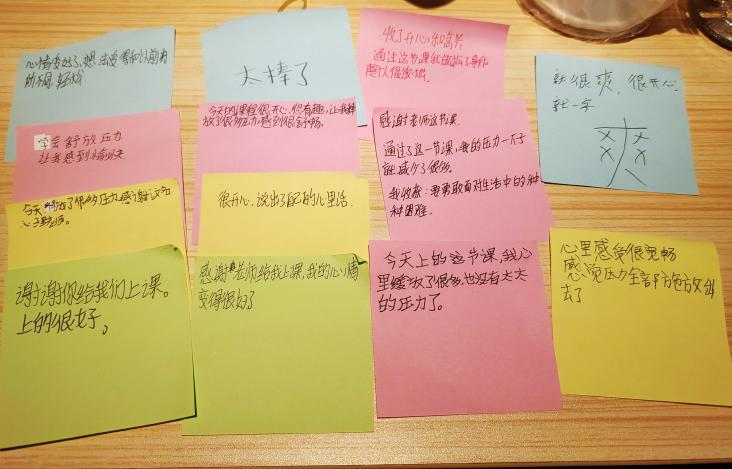 心情变好了，想法发看和以前有
所不同，轻松
太棒了
收了开心和高兴
通过这节课我放出了身体
就很爽，很开心，
就一字
爽
学会舒放压力
让我感到愉快
今天的课程很开心，很有趣，让我释
放了很多压力，感到很舒畅。
感谢老师这节课
通过了这一节课，我的压力一下子
就减少了很多。
我收获：要勇敢面对生活中的种
种困难。
今天释放了很多压力感谢
心理老师。
很开心，说出了自己的心里话
谢谢你给我们上课。
上的很好。
感谢老师给我上课，我的心情
变得很好了
今天上的这节课，我心
里缓放了很多，也没有太大
的压力了。
心里感受很宽畅
感觉压力全部释放
去了